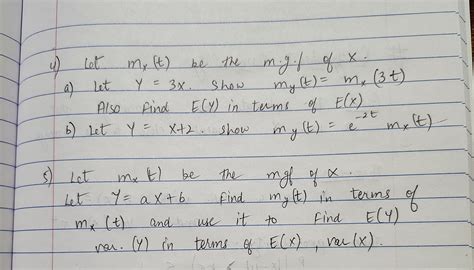 4) Let mx(t) be the m.g.f of X.
a) Let Y = 3x. Show my(t) = mx(3t)
Also find E(Y) in terms of E(X)
b) Let Y = x+2. show my(t) = e^-2t mx(t)
5) Let mx(t) be the mgf of x.
Let Y = ax+b Find my(t) in terms of
mx(t) and use it to find E(Y)
var.(Y) in terms of E(X), var(X).